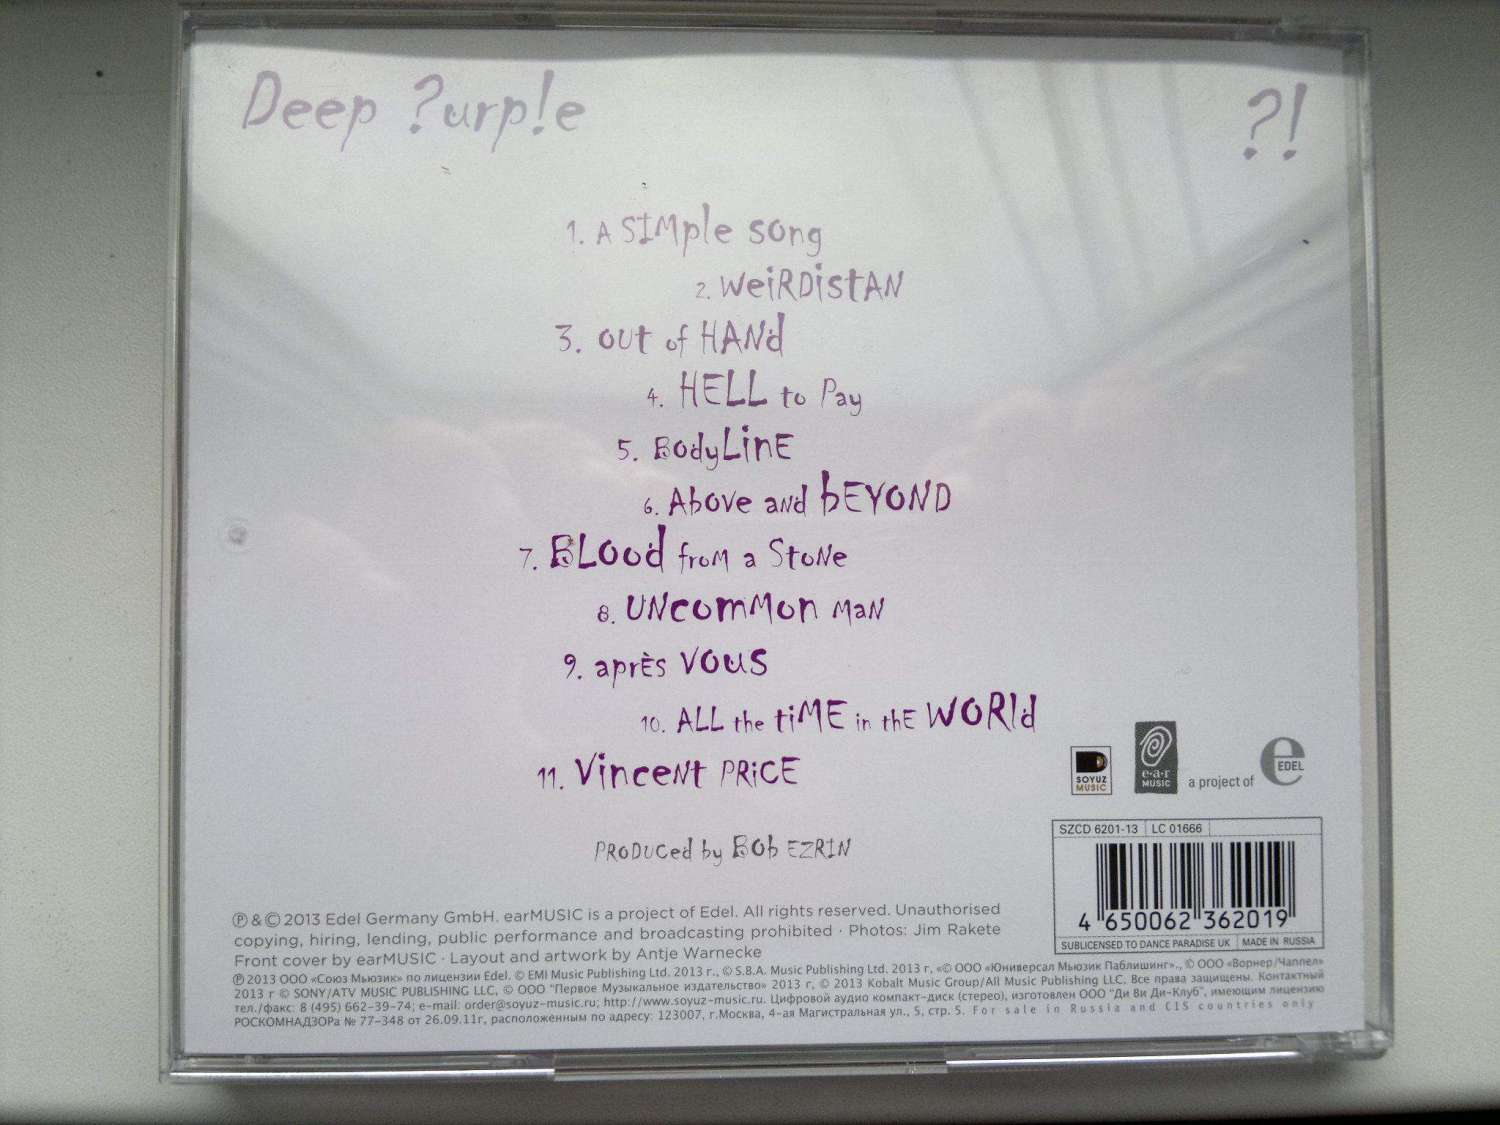 Deep ?urp!e
?!
1. A SIMple song
2. WeiRDistAN
3. out of HANd
4. HELL to Pay
5. BodyLinE
6. Above and bEYOND
7. BLood froM a StoNe
8. UNcomMon MaN
9. aprÈs VOUS
10. ALL the tiME in thE WORld
11. VinceNt PRiCE
PRODUCed by BOb EZRIN
SOYUZ MUSIC
e·a·r MUSIC
a project of
e EDEL
SZCD 6201-13 LC 01666
4 650062 362019
SUBLICENSED TO DANCE PARADISE UK MADE IN RUSSIA
℗ & © 2013 Edel Germany GmbH. earMUSIC is a project of Edel. All rights reserved. Unauthorised
copying, hiring, lending, public performance and broadcasting prohibited · Photos: Jim Rakete
Front cover by earMUSIC · Layout and artwork by Antje Warnecke
℗ 2013 ООО «Союз Мьюзик» по лицензии Edel. © EMI Music Publishing Ltd. 2013 г., © S.B.A. Music Publishing Ltd. 2013 г, «© ООО «Юниверсал Мьюзик Паблишинг»., © ООО «Ворнер/Чаппел»
2013 г © SONY/ATV MUSIC PUBLISHING LLC, © ООО "Первое Музыкальное издательство» 2013 г, © 2013 Kobalt Music Group/All Music Publishing LLC. Все права защищены. Контактный
тел./факс: 8 (495) 662-39-74; e-mail: order@soyuz-music.ru; http://www.soyuz-music.ru. Цифровой аудио компакт-диск (стерео), изготовлен ООО "Ди Ви Ди-Клуб", имеющим лицензию
РОСКОМНАДЗОРа № 77-348 от 26.09.11г, расположенным по адресу: 123007, г.Москва, 4-ая Магистральная ул., 5, стр. 5. For sale in Russia and CIS countries only